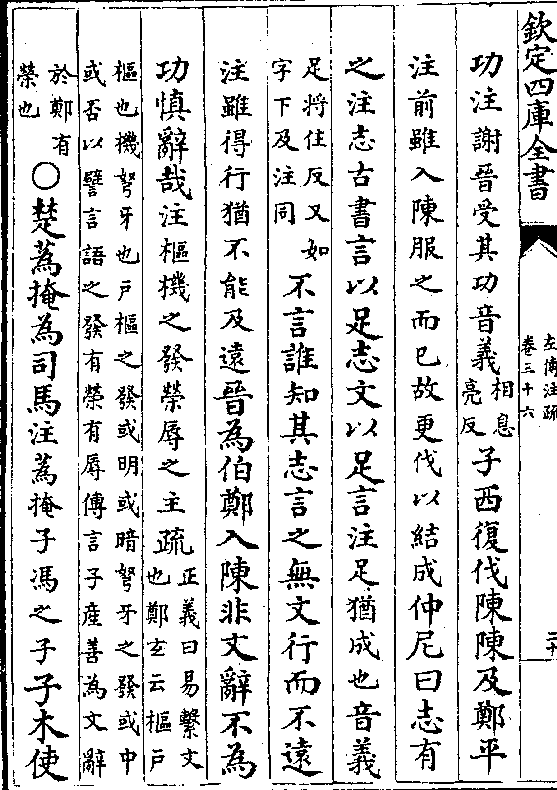 欽定四庫全書
左傳注疏
卷三十六
二十
功注謝晉受其功音義相息亮反子西復伐陳陳及鄭平
注前雖入陳服之而已故更伐以結成仲尼曰志有
之注志古書言以足志文以足言注足猶成也音義
足將住反又如字下及注同不言誰知其志言之無文行而不遠
注雖得行猶不能及遠晉為伯鄭入陳非文辭不為
功慎辭哉注樞機之發榮辱之主疏正義曰易繫文也鄭玄云樞戶
樞也機弩牙也戶樞之發或明或暗弩牙之發或中
或否以譬言語之發有榮有辱傳言子產善為文辭
於鄭有榮也○楚蒍掩為司馬注蒍掩子馮之子子木使